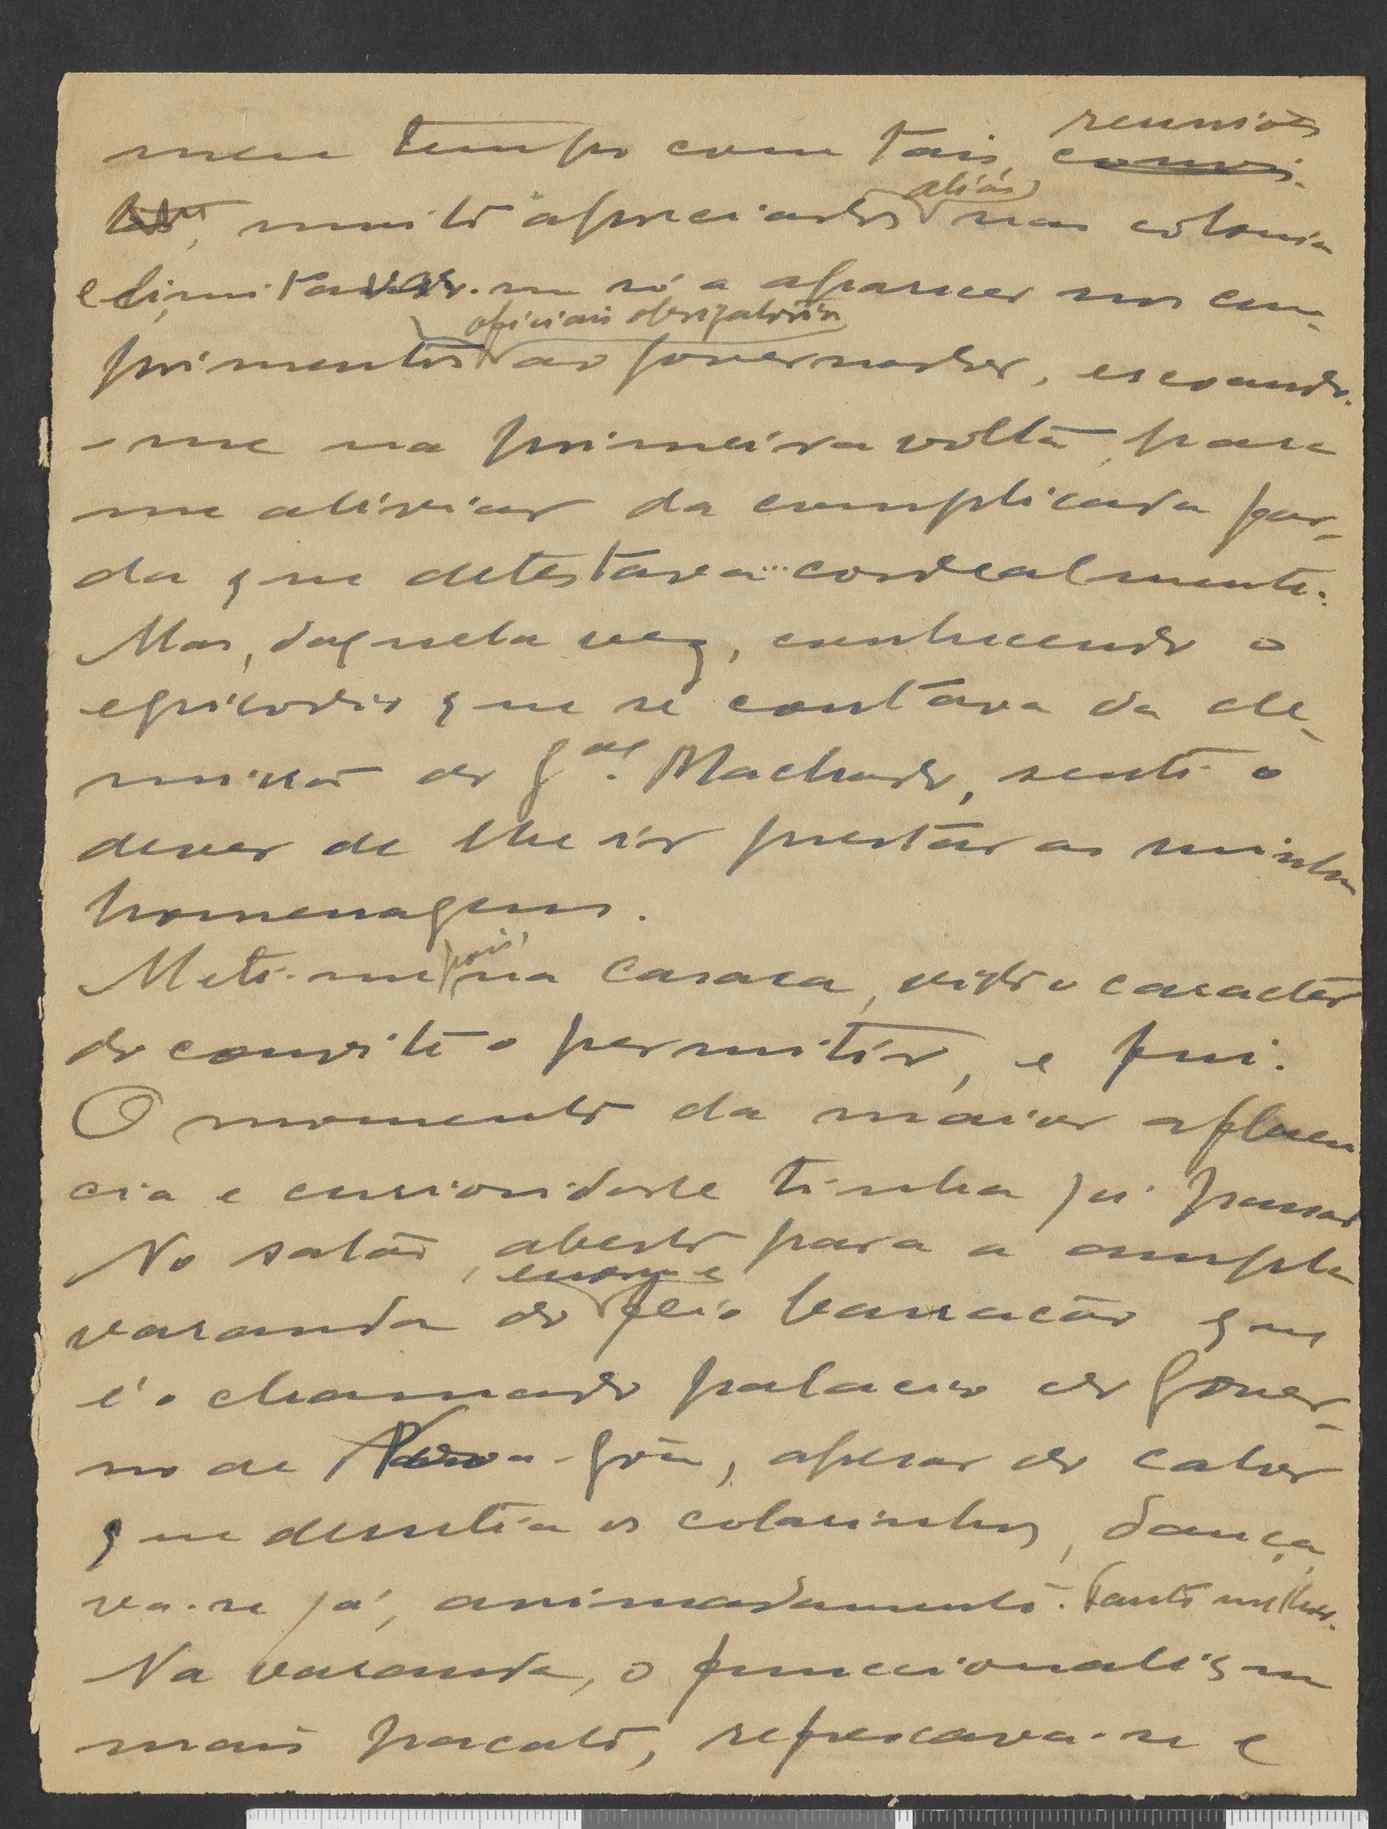 reuniões
meu tempo com tais convi-
tes, muito apreciados aliás nas colonia
e limitava-me só a aparecer nos cum-
oficiais obrigatorios
primentos ao governador, escoando-
-me na primeira volta, para
me aliviar da complicada far-
da que detestava... cordealmente.
Mas, daquela vez, conhecendo o
episodio que se contava da de-
missão do Gal. Machado, senti o
dever de lhe ir prestar as minhas
homenagens.
Meti-me pois, na casaca, visto o caracter
do convite o permitir, e fui.
O momento da maior afluen
cia e curiosidade tinha já passado
No salão, aberto para a ampla
enorme e
varanda do feio barracão que
é o chamado palacio do Gover-
no de Nova-Gôa, apesar do calor
que derretia os colarinhos, dança
va-se já, animadamente. Tanto melhor.
Na varanda, o funccionalismo
mais pacato, refrescava-se e